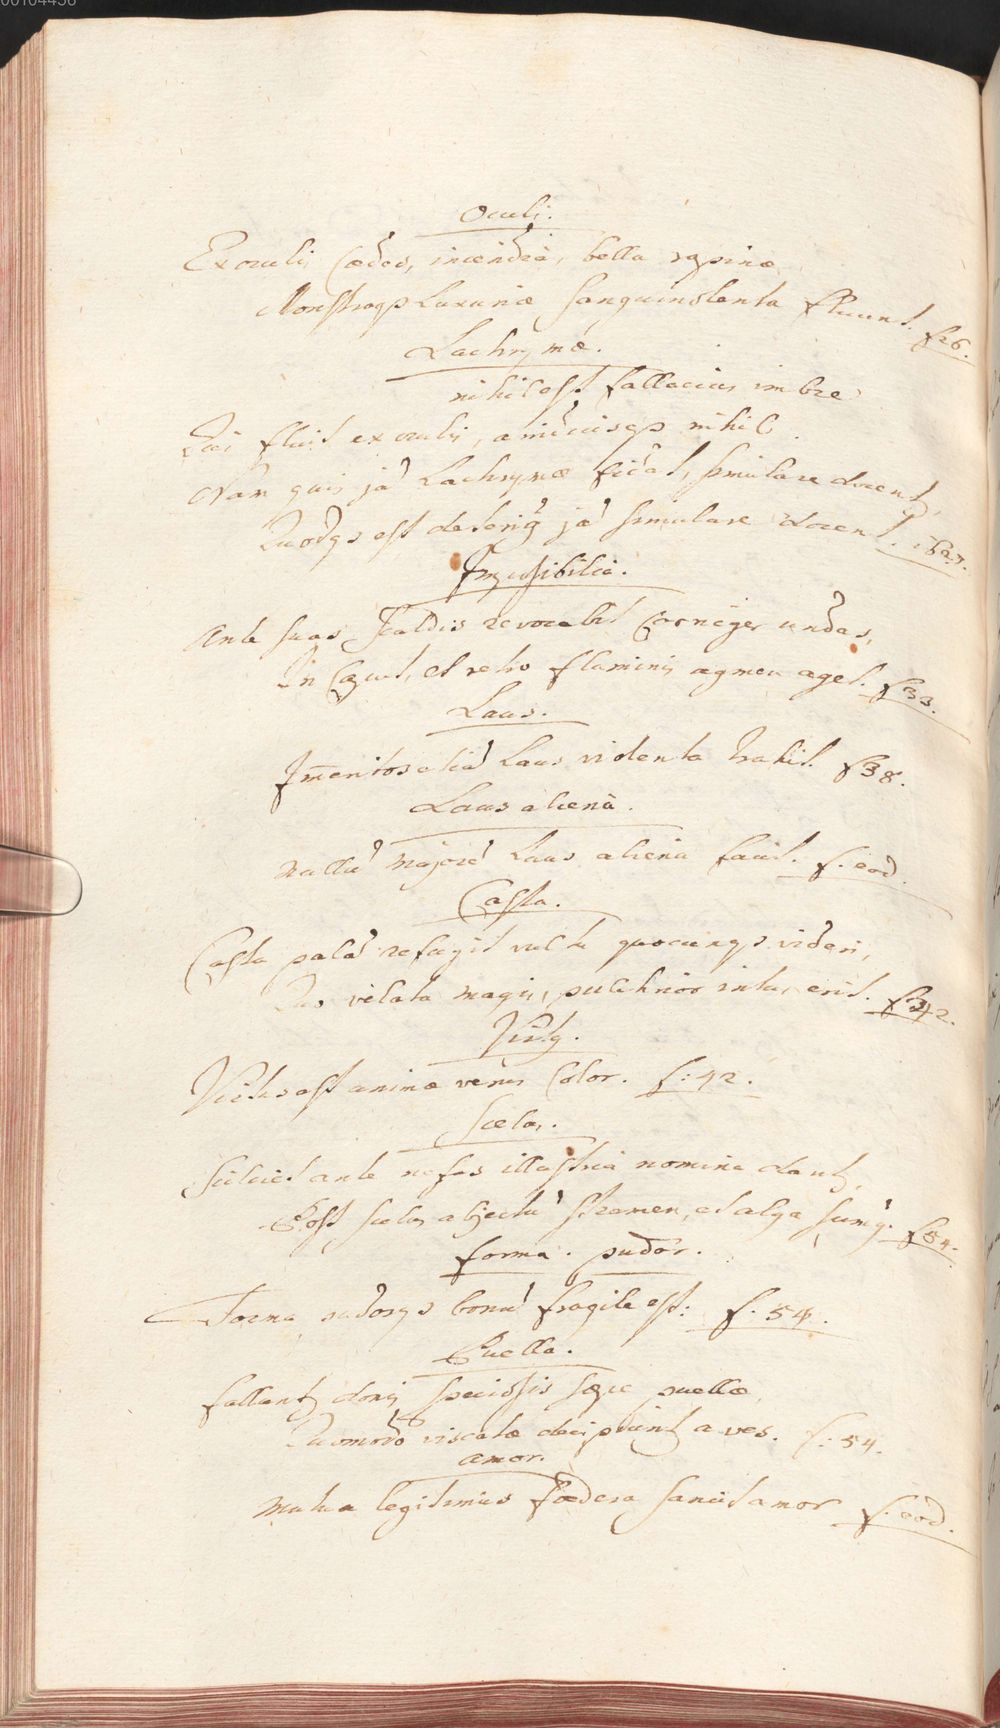 00104436
Oculi.
Ex oculis cædes, incendia, bella rapinæ
Monstraqꝫ Luxuriæ sanguinolenta fluunt. f26.
Lachrymæ.
nihil est fallacius imbre
Qui fluit ex oculis, amicusqꝫ nihil
Nam quis jā Lachrymæ simulare docent,
Quodqꝫ est deteriꝰ jā simulare docent. ibid.
Impossibilia.
Ante suas Scaldis revocabit Corniger undas,
In Caput, et retro fluminis agmen aget. f33.
Laus.
Im̄eritos etiā Laus violenta trahit. f38.
Laus aliena.
nullū majorē Laus aliena facit. f. eod.
Casta.
Casta palā refugit vultu quocunqꝫ videri,
Quo velata magis, pulchrior intus erit. f42.
Virtꝰ.
Virtus est animæ verus Color. f: 42.
Scelus.
Scilicet ante nefas illustria nomina dantꝰ,
Post scelus abjectū stramen, et alga sumꝰ. f54.
forma. pudor.
Forma pudorqꝫ bonū fragile est: f. 54.
Puella.
falluntꝰ donis speciosis sæpe puellæ
Quomodo viscatæ decipiuntꝰ aves. f: 54.
amor.
mutua legitimus fœdera sancit amor f. eod.